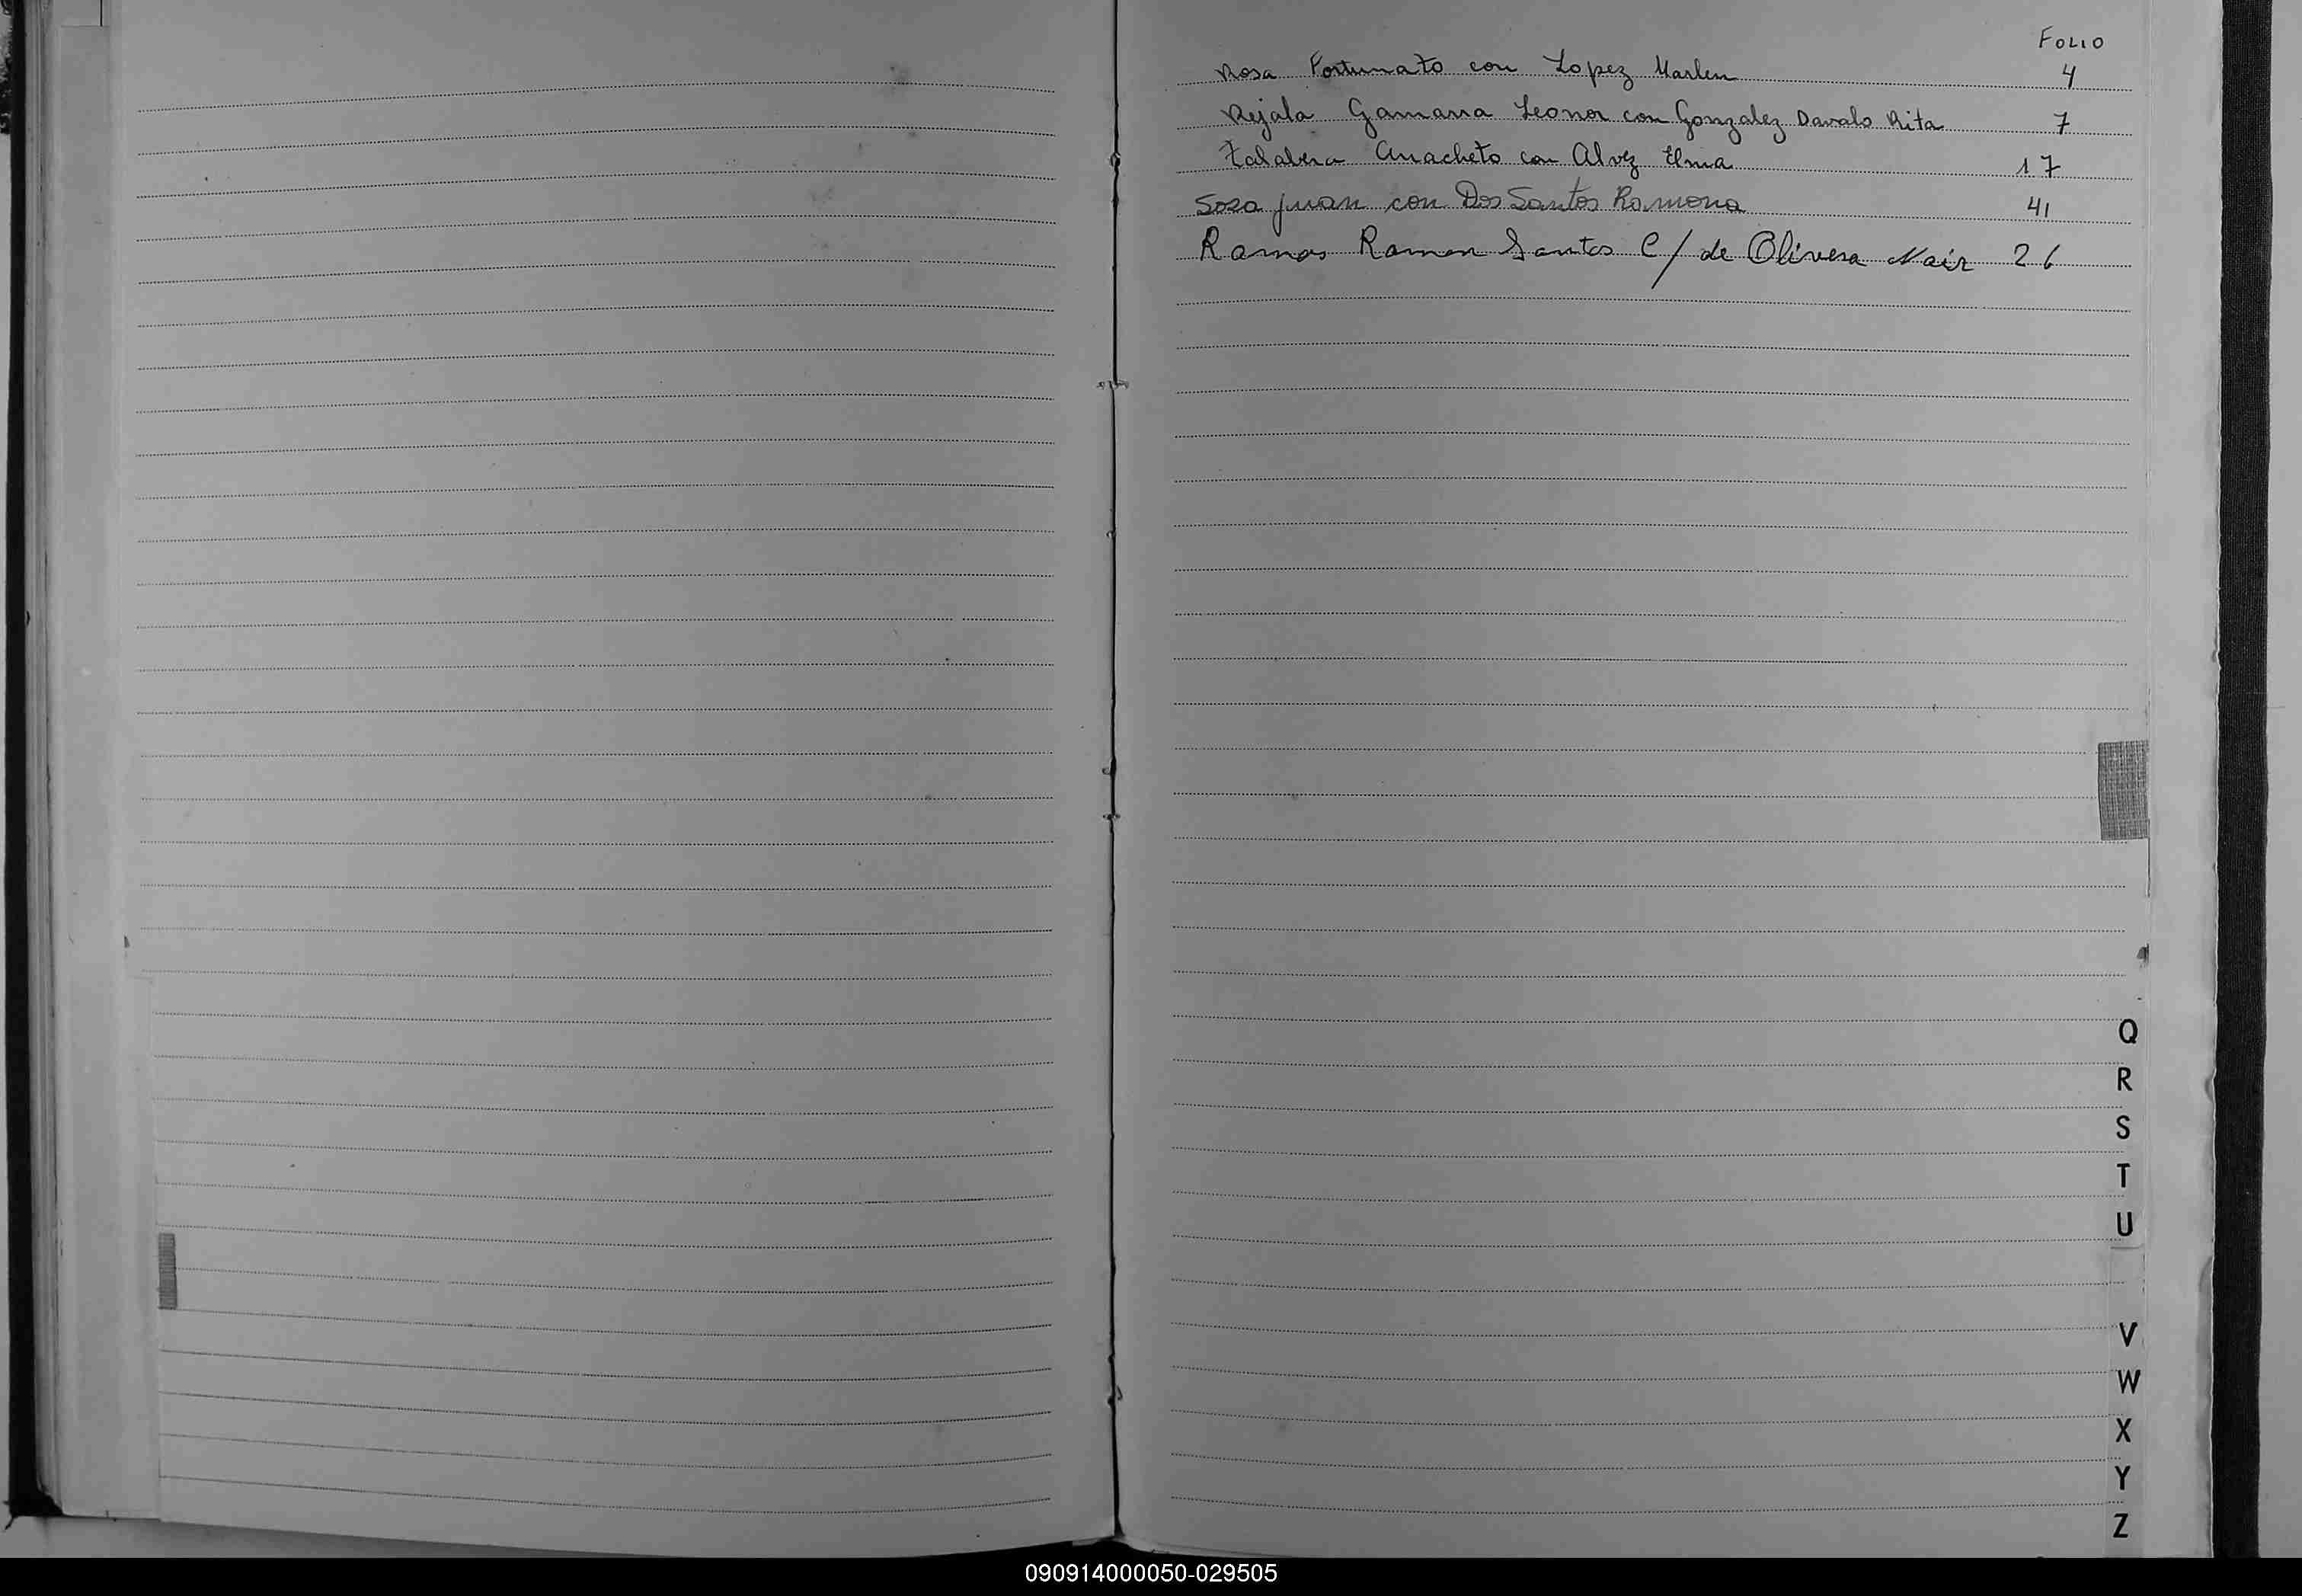 FOLIO
Rosa Fortunato con Lopez Marlen 4
Rejala Gamarra Leonor con Gonzalez Davalo Rita 7
Talabera Anacheto con Alvez Elma 17
Sosa juan con Dos Santos Ramona 41
Ramos Ramon Santos C/ de Olivera Nair 26
Q
R
S
T
U
V
W
X
Y
Z
090914000050-029505